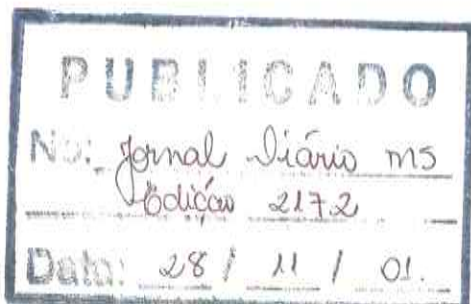 PUBLICADO
No: Jornal Diário MS
Edição 2172
Data: 28 / 11 / 01.